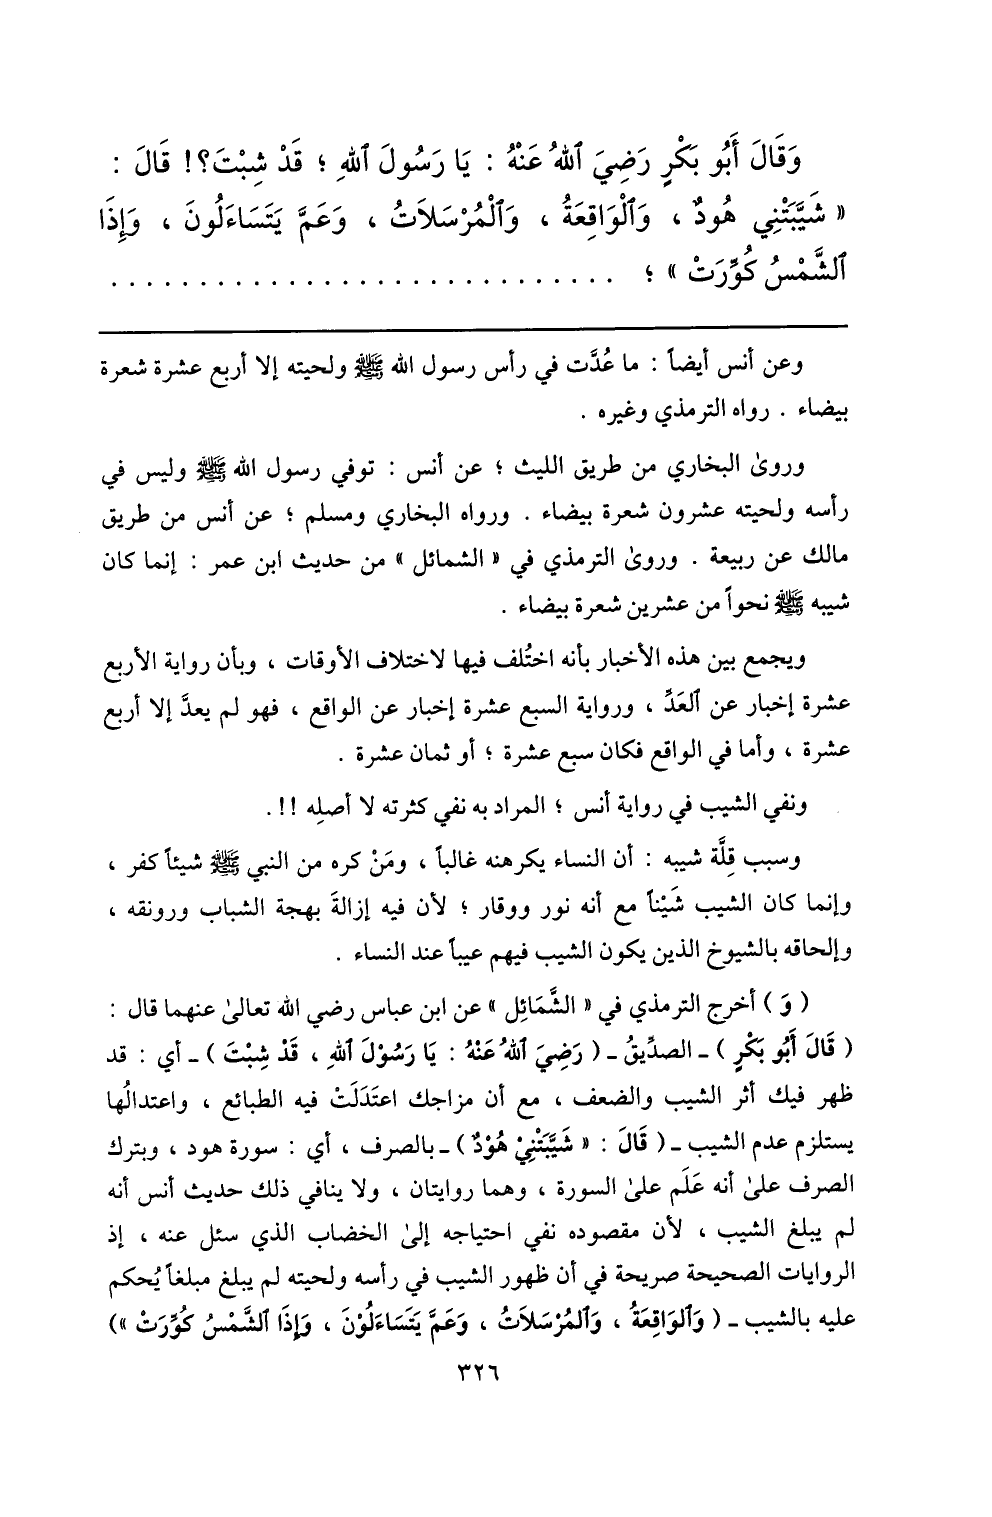 وَقَالَ أَبُو بَكْرٍ رَضِيَ ٱللهُ عَنْهُ : يَا رَسُولَ ٱللهِ ؛ قَدْ شِبْتَ؟! قَالَ :
« شَيَّبَتْنِي هُودٌ ، وَٱلْوَاقِعَةُ ، وَٱلْمُرْسَلاَتُ ، وَعَمَّ يَتَسَاءَلُونَ ، وَإِذَا
ٱلشَّمْسُ كُوِّرَتْ » ؛ . . . . . . . . . . . . . . . . . . . . . . . . . . . . .
وعن أنس أيضاً : ما عُدَّت في رأس رسول الله ﷺ ولحيته إلا أربع عشرة شعرة
بيضاء . رواه الترمذي وغيره .
وروىٰ البخاري من طريق الليث ؛ عن أنس : توفي رسول الله ﷺ وليس في
رأسه ولحيته عشرون شعرة بيضاء . ورواه البخاري ومسلم ؛ عن أنس من طريق
مالك عن ربيعة . وروىٰ الترمذي في « الشمائل » من حديث ابن عمر : إنما كان
شيبه ﷺ نحواً من عشرين شعرة بيضاء .
ويجمع بين هذه الأخبار بأنه اختُلف فيها لاختلاف الأوقات ، وبأن رواية الأربع
عشرة إخبار عن ٱلعَدِّ ، ورواية السبع عشرة إخبار عن الواقع ، فهو لم يعدَّ إلا أربع
عشرة ، وأما في الواقع فكان سبع عشرة ؛ أو ثمان عشرة .
ونفي الشيب في رواية أنس ؛ المراد به نفي كثرته لا أصلِه !!.
وسبب قِلَّة شيبه : أن النساء يكرهنه غالباً ، ومَنْ كره من النبي ﷺ شيئاً كفر ،
وإنما كان الشيب شَيْناً مع أنه نور ووقار ؛ لأن فيه إزالةَ بهجة الشباب ورونقه ،
وإلحاقه بالشيوخ الذين يكون الشيب فيهم عيباً عند النساء .
( وَ ) أخرج الترمذي في « الشَّمَائِل » عن ابن عباس رضي الله تعالىٰ عنهما قال :
( قَالَ أَبُو بَكْرٍ ) ـ الصدِّيقُ ـ ( رَضِيَ ٱللهُ عَنْهُ : يَا رَسُوْلَ ٱللهِ ، قَدْ شِبْتَ ) ـ أي : قد
ظهر فيك أثر الشيب والضعف ، مع أن مزاجك اعتَدَلَتْ فيه الطبائع ، واعتدالُها
يستلزم عدم الشيب ـ ( قَالَ : « شَيَّبَتْنِيْ هُوْدٌ ) ـ بالصرف ، أي : سورة هود ، وبترك
الصرف علىٰ أنه عَلَم علىٰ السورة ، وهما روايتان ، ولا ينافي ذلك حديث أنس أنه
لم يبلغ الشيب ، لأن مقصوده نفي احتياجه إلىٰ الخضاب الذي سئل عنه ، إذ
الروايات الصحيحة صريحة في أن ظهور الشيب في رأسه ولحيته لم يبلغ مبلغاً يُحكم
عليه بالشيب ـ ( وَٱلوَاقِعَةُ ، وَٱلمُرْسَلاَتُ ، وَعَمَّ يَتَسَاءَلُوْنَ ، وَإِذَا ٱلشَّمْسُ كُوِّرَتْ »)
٣٢٦